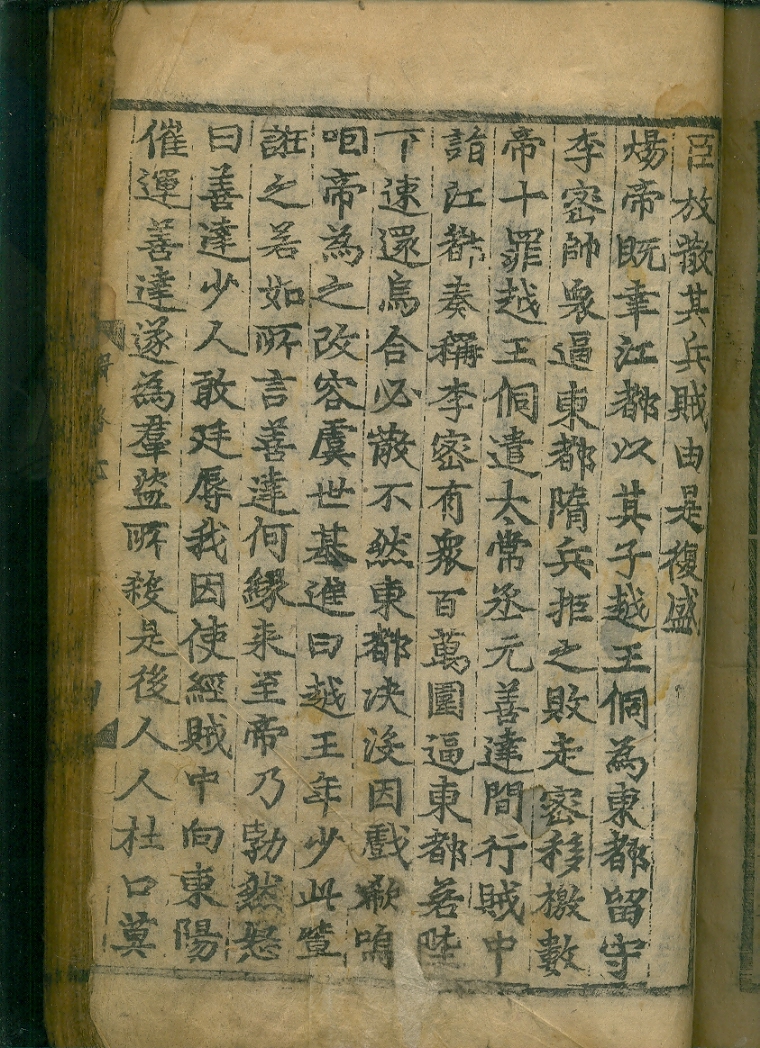 臣放散其兵賊由是複盛
煬帝既幸江都以其子越王侗為東都留守
李密帥衆逼東都隋兵拒之敗走密移檄數
帝十罪越王侗遣太常丞元善達間行賊中
詣江都奏稱李密有衆百萬圍逼東都若陛
下速還烏合必散不然東都决沒因戲欷嗚
咽帝為之改容虞世基進曰越王年少此軰
誑之若如所言善達何緣来至帝乃勃然怒
曰善達少人敢廷辱我因使經賊中向東陽
催運善達遂為羣盜所殺是後人人杜口莫